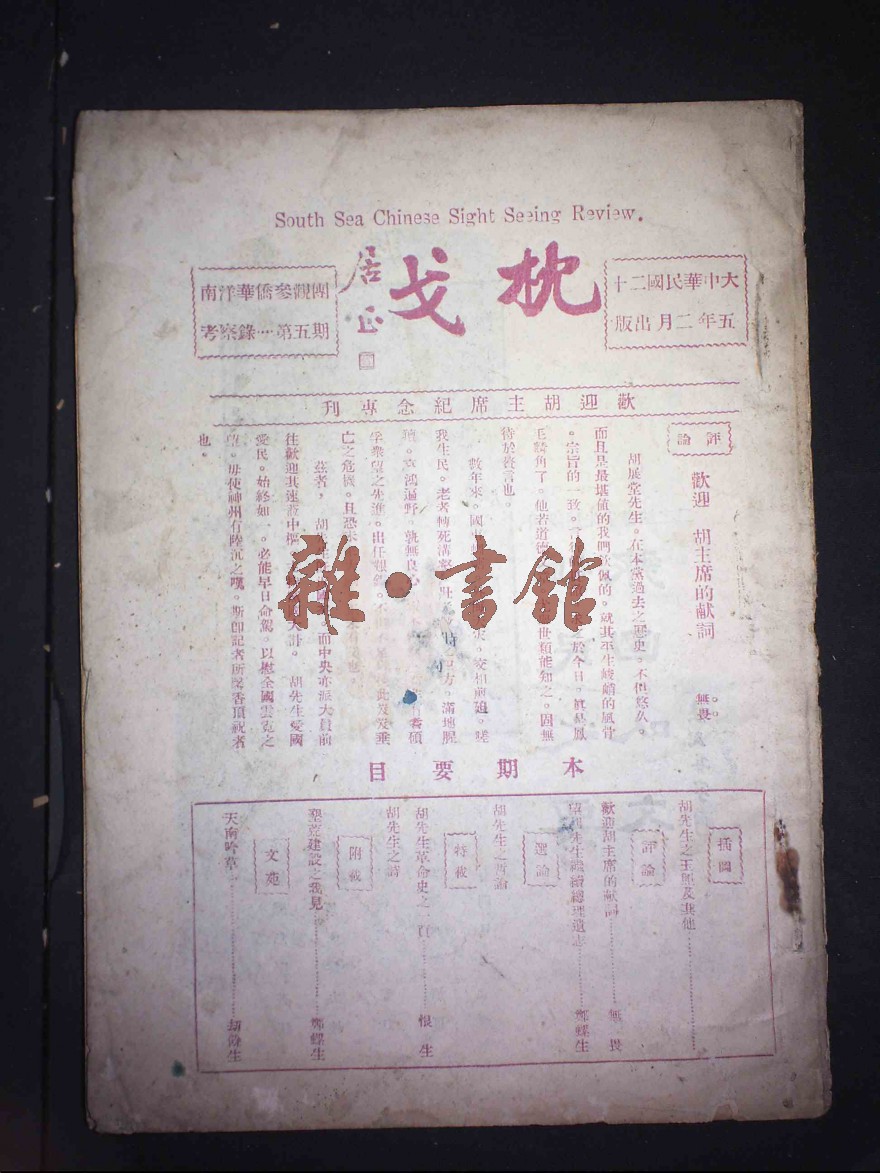 South Sea Chinese Sight Seeing Review.
大中華民國二十
五年二月出版
枕戈
居正
南洋華僑參觀團
考察錄…第五期
歡迎胡主席紀念專刊
評論
歡迎 胡主席的献詞
無畏
胡展堂先生。在本黨過去之歷史。不但悠久。
而且是最堪值的我們欽佩的。就其平生峻嶒的風骨
。宗旨的一致。
於今日。眞是鳳
毛麟角了。他若道德
世類能知之。固無
待於贅言也。
數年來。國
災。交相煎迫。嗟
我生民。老者轉死溝壑。壯
四方。滿地腥
羶。哀鴻遍野。孰無良心
耆碩
孚衆望之先進。出任艱鉅。不
此岌岌垂
亡之危國。且恐
也。
茲者。 胡
而中央亦派大員前
往歡迎其速蒞中樞。
大計。 胡先生愛國
愛民。始終如一。必能早日命駕。以慰全國雲霓之
望。毋使神州有陸沉之嘆。斯卽記者所馨香頂祝者
也。
雜·書館
本期要目
插圖
胡先生之玉照及其他
評論
歡迎胡主席的献詞 無畏
望胡先生繼續總理遺志 鄭螺生
選論
胡先生之言論
特載
胡先生革命史之一頁 恨生
胡先生之詩
附載
墾荒建設之我見 鄭螺生
文苑
天南吟草 劫餘生